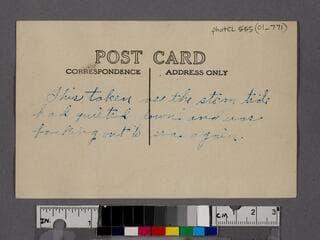 photCL 555 (01-771)
POST CARD
CORRESPONDENCE ADDRESS ONLY
This taken as the storm tide
had quieted down and was
backing out to sea again.
IN. 1 CM 2 3